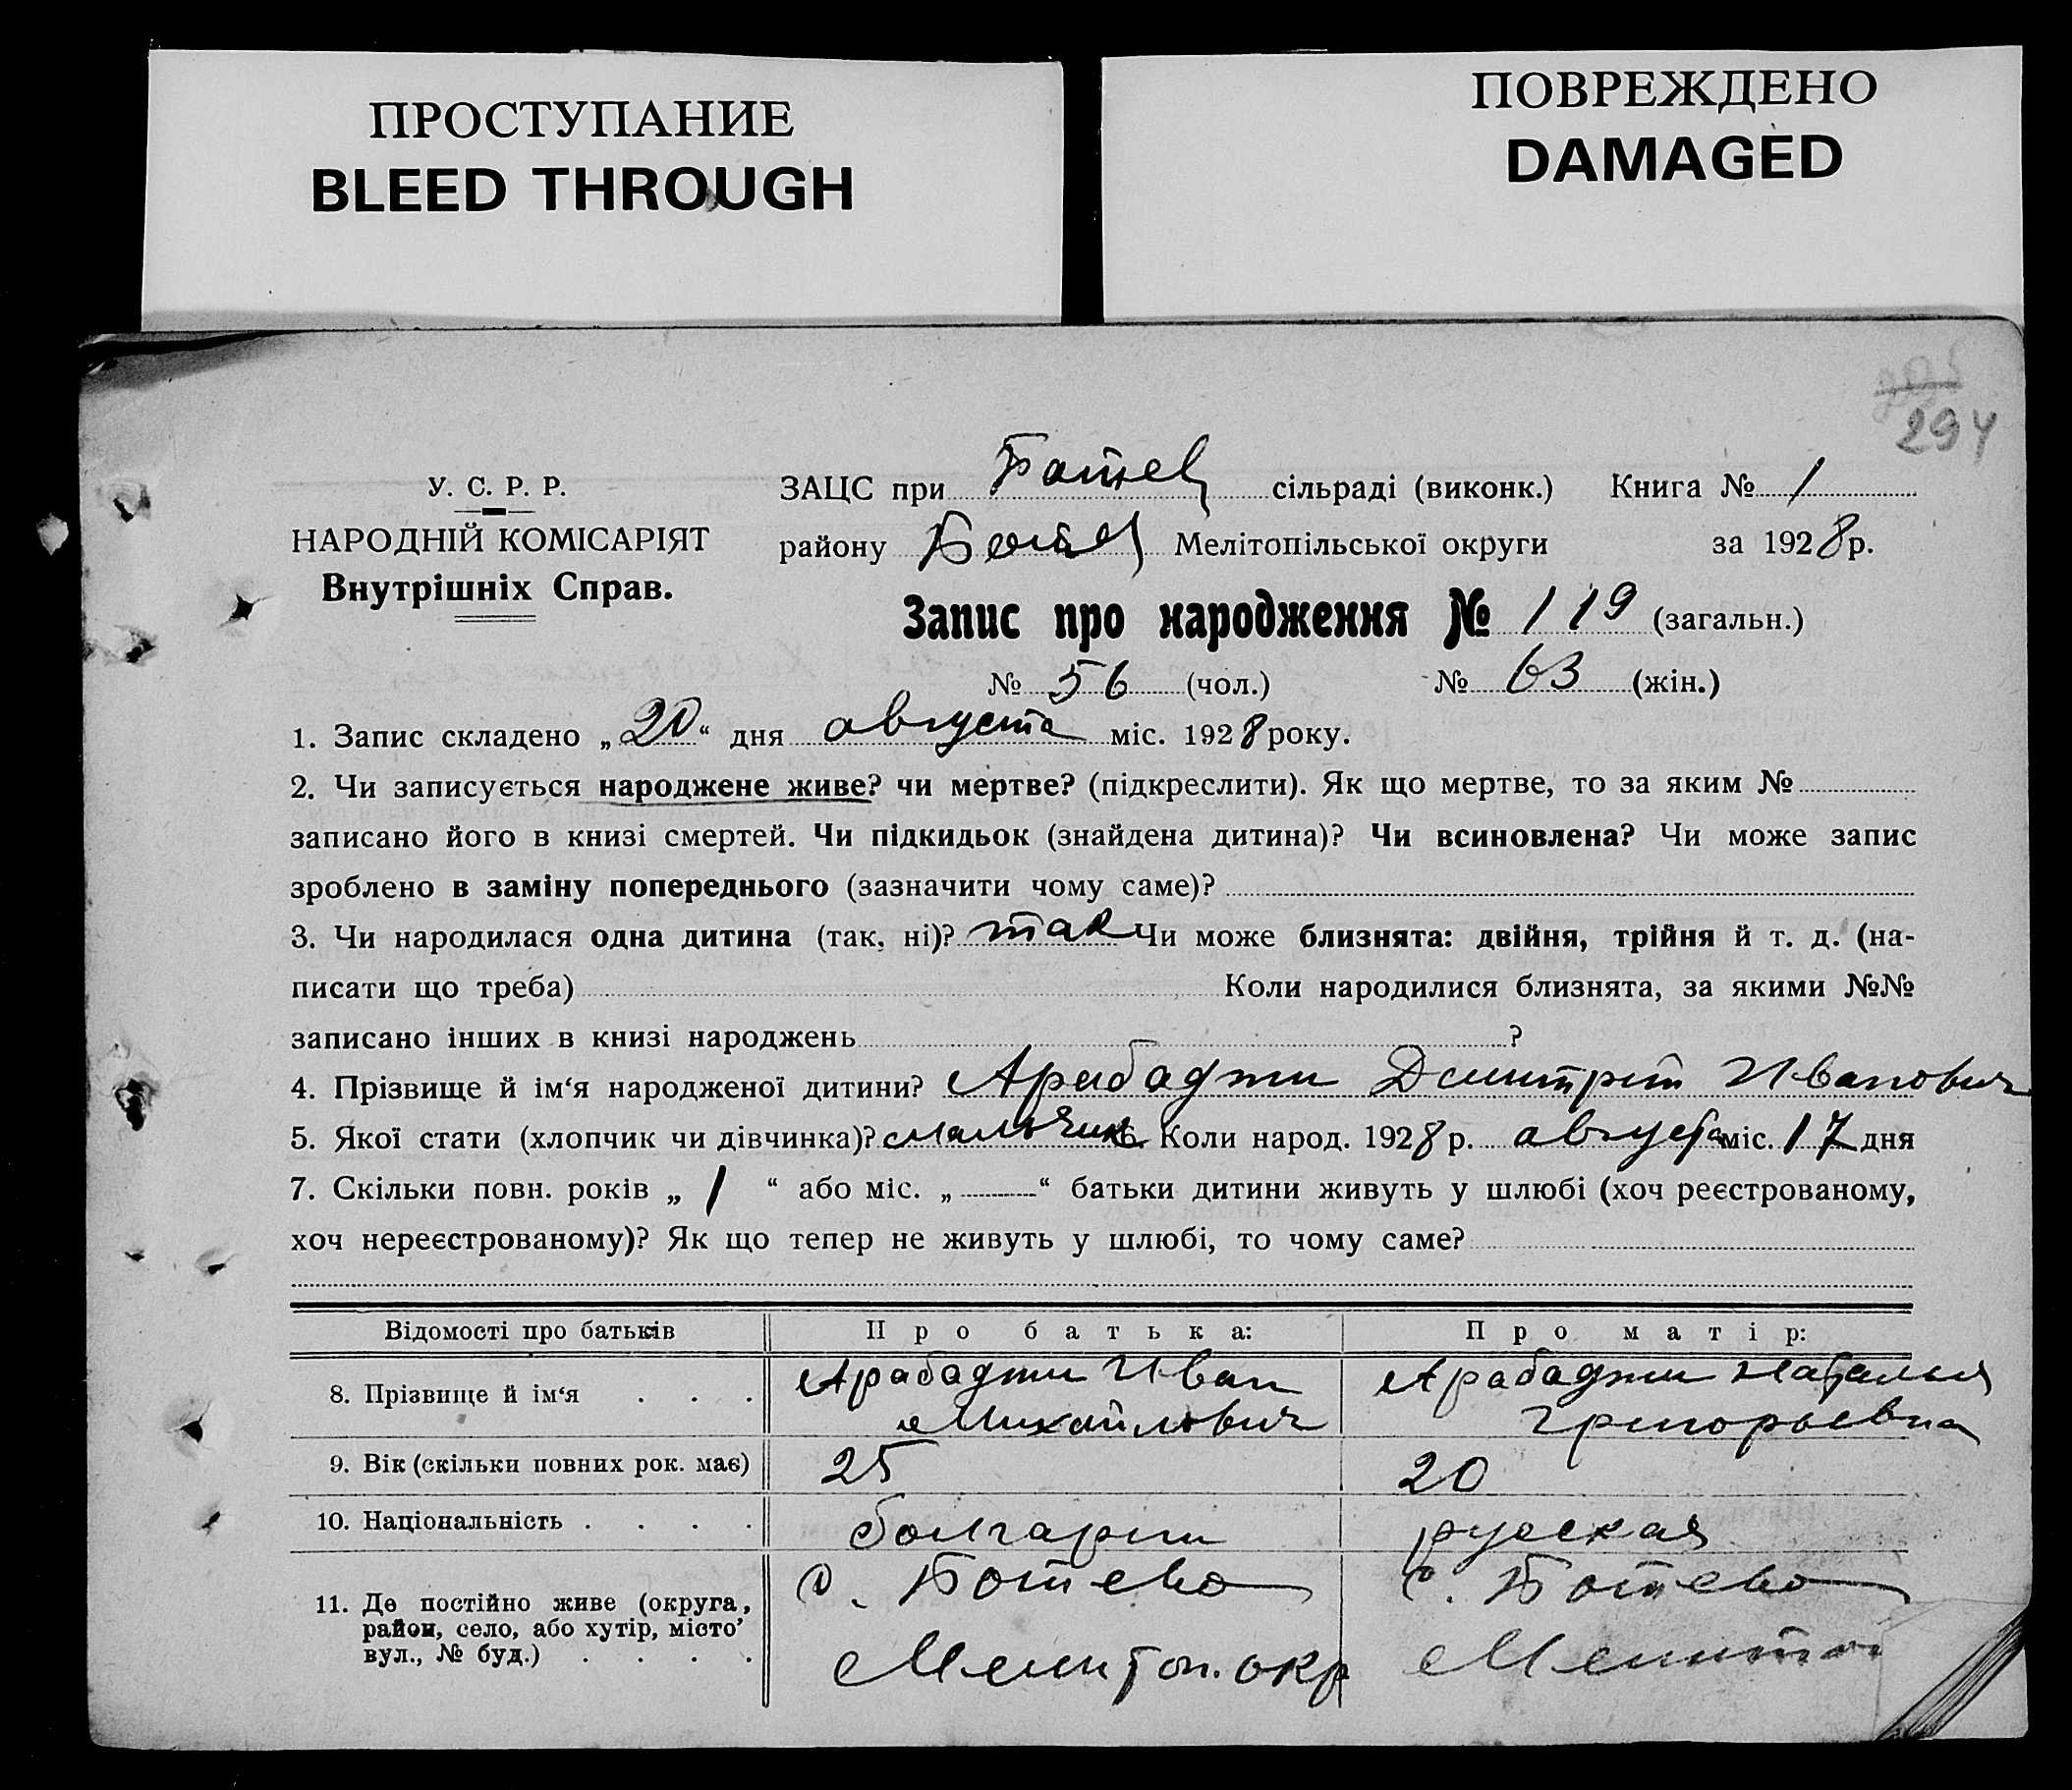 ПРОСТУПАНИЕ
BLEED THROUGH
ПОВРЕЖДЕНО
DAMAGED
294
У. С. Р. Р.
НАРОДНІЙ КОМІСАРІЯТ
Внутрішніх Справ.
ЗАЦС при Ботев сільраді (виконк.) Книга № 1
району Ботев Мелітопільської округи за 1928 р.
Запис про народження № 119 (загальн.)
№ 56 (чол.) № 63 (жін.)
1. Запис складено „20“ дня августа міс. 1928 року.
2. Чи записується народжене живе? чи мертве? (підкреслити). Як що мертве, то за яким №
записано його в книзі смертей. Чи підкидьок (знайдена дитина)? Чи всиновлена? Чи може запис
зроблено в заміну попереднього (зазначити чому саме)?
3. Чи народилася одна дитина (так, ні)? так Чи може близнята: двійня, трійня й т. д. (на-
писати що треба) Коли народилися близнята, за якими №№
записано інших в книзі народжень ?
4. Прізвище й ім‘я народженої дитини? Арабаджи Дмитрій Иванович
5. Якої стати (хлопчик чи дівчинка)? мальчик Коли народ. 1928 р. августа міс. 17 дня
7. Скільки повн. років „ 1 “ або міс. „ “ батьки дитини живуть у шлюбі (хоч реєстрованому,
хоч нереєстрованому)? Як що тепер не живуть у шлюбі, то чому саме?
Відомості про батьків Про батька: Про матір:
8. Прізвище й ім‘я . . . Арабаджи Иван Михайлович Арабаджи Наталия Григорьевна
9. Вік (скільки повних рок. має) 25 20
10. Національність . . . . болгарин руская
11. Де постійно живе (округа, с. Ботево с. Ботево
район, село, або хутір, місто’
вул., № буд.) . . . . Мелитоп. окр Мелитоп